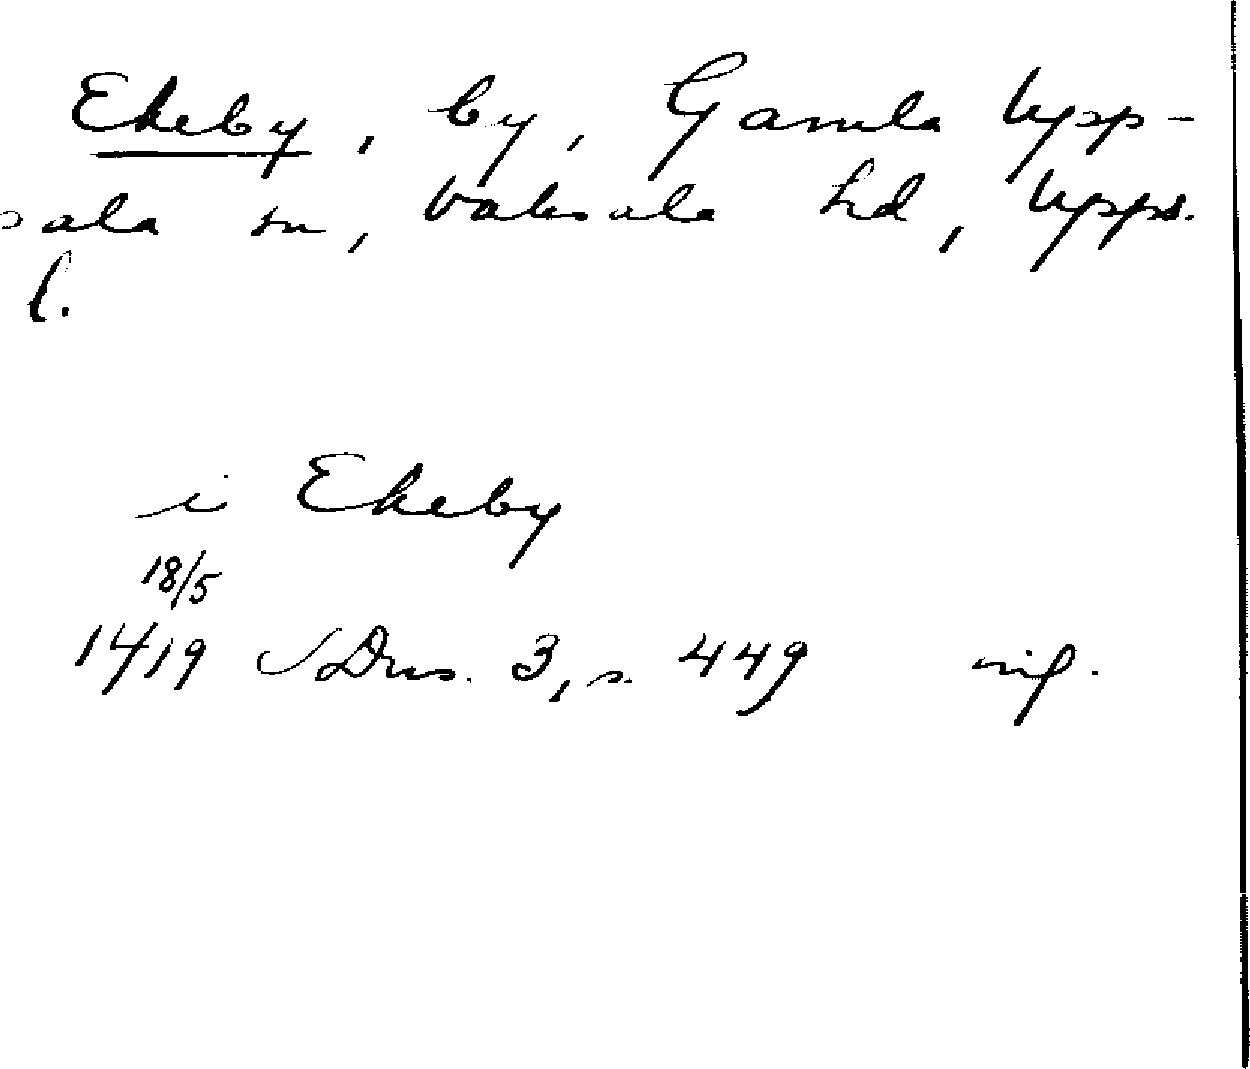 Ekeby, by, Gamla Upp-
sala sn, Vaksala hd, Upps.
l.
i Ekeby
18/5
1419 SDns. 3, s. 449 nif.